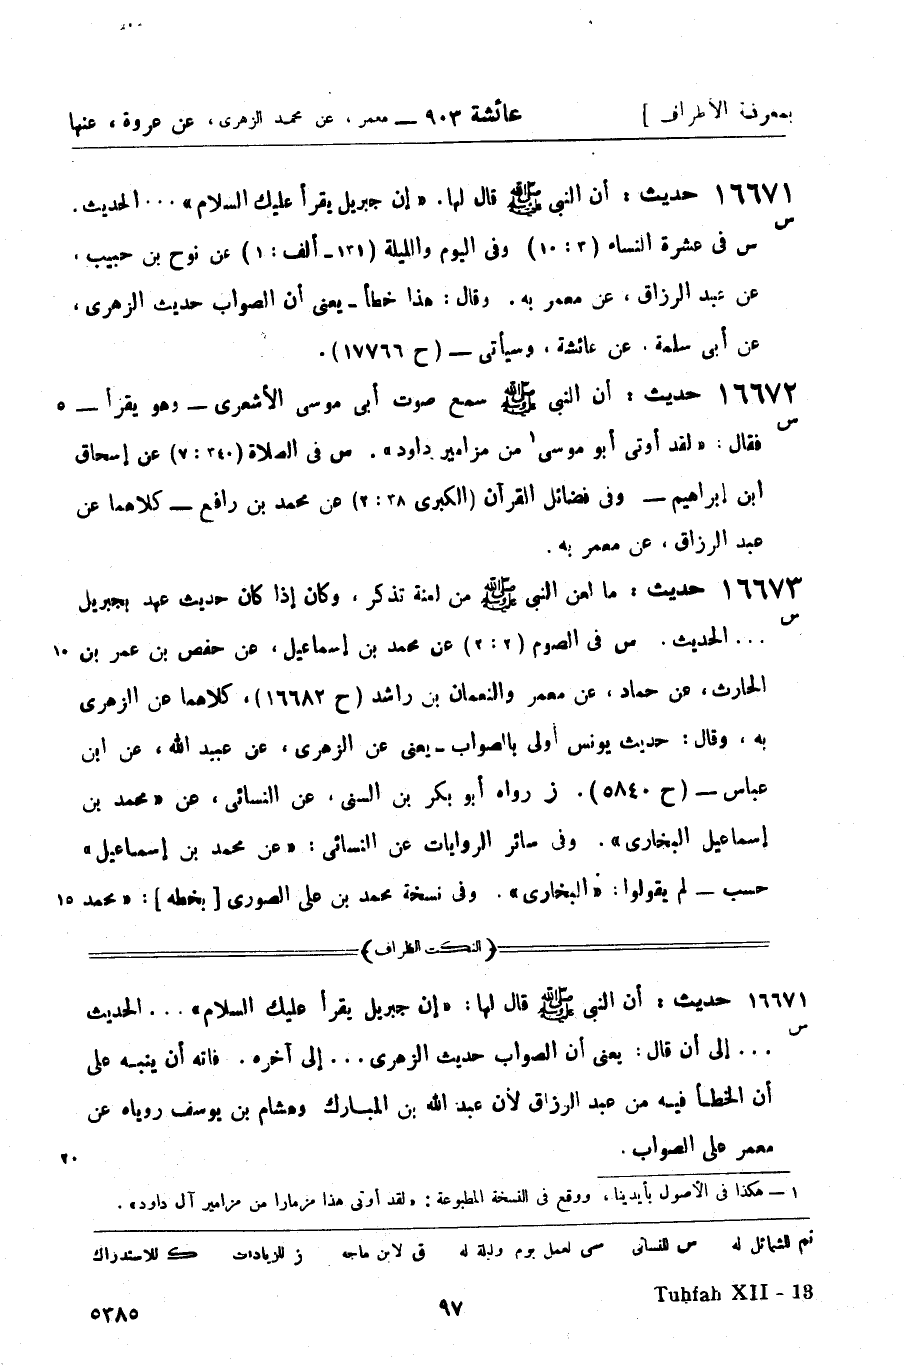 بمعرفة الأطراف ] عائشة ٩٠٣ ــ معمر ، عن محمد الزهرى ، عن عروة ، عنها
١٦٦٧١ حديث : أن النبى ﷺ قال لها . « إن جبريل يقرأ عليك السلام » ... الحديث .
س
س فى عشرة النساء (٣ : ١٠) وفى اليوم والليلة (١٣١ ـ ألف : ١) عن نوح بن حبيب ،
عن عبد الرزاق ، عن معمر به . وقال : هذا خطأ ـ يعنى أن الصواب حديث الزهرى ،
عن أبى سلمة . عن عائشة ، وسيأتى ــ (ح ١٧٧٦٦) .
١٦٦٧٢ حديث : أن النبى ﷺ سمع صوت أبى موسى الأشعرى ــ وهو يقرأ ــ ٥
س
فقال : « لقد أوتى أبو موسى ١ من مزامير داود » . س فى الصلاة (٣٤٠ : ٧) عن إسحاق
ابن إبراهيم ــ وفى فضائل القرآن (الكبرى ٣٨ : ٢) عن محمد بن رافع ــ كلاهما عن
عبد الرزاق ، عن معمر به .
١٦٦٧٣ حديث : ما لعن النبى ﷺ من لعنة تذكر ، وكان إذا كان حديث عهد بجبريل
س
... الحديث . س فى الصوم (٢ : ٢) عن محمد بن إسماعيل ، عن حفص بن عمر بن ١٠
الحارث ، عن حماد ، عن معمر والنعمان بن راشد (ح ١٦٦٨٢) ، كلاهما عن الزهرى
به ، وقال : حديث يونس أولى بالصواب ـ يعنى عن الزهرى ، عن عبيد الله ، عن ابن
عباس ــ (ح ٥٨٤٠) . ز رواه أبو بكر بن السنى ، عن النسائى ، عن « محمد بن
إسماعيل البخارى » . وفى سائر الروايات عن النسائى : « عن محمد بن إسماعيل »
حسب ــ لم يقولوا : « البخارى » . وفى نسخة محمد بن على الصورى [ بخطه ] : « محمد ١٥
(النكت الظراف)
١٦٦٧١ حديث : أن النبى ﷺ قال لها : « إن جبريل يقرأ عليك السلام » ... الحديث
س
... إلى أن قال : يعنى أن الصواب حديث الزهرى ... إلى آخره . فاته أن ينبه على
أن الخطأ فيه من عبد الرزاق لأن عبد الله بن المبارك وهشام بن يوسف روياه عن
معمر على الصواب . ٢٠
١ ــ هكذا فى الأصول بأيدينا ، ووقع فى النسخة المطبوعة : « لقد أوتى هذا مزمارا من مزامير آل داود » .
تم للشمائل له س للنسائى سى لعمل يوم وليلة له ق لابن ماجه ز للزيادات ك للاستدراك
Tuḥfah XII - 13
٩٧
٥٣٨٥